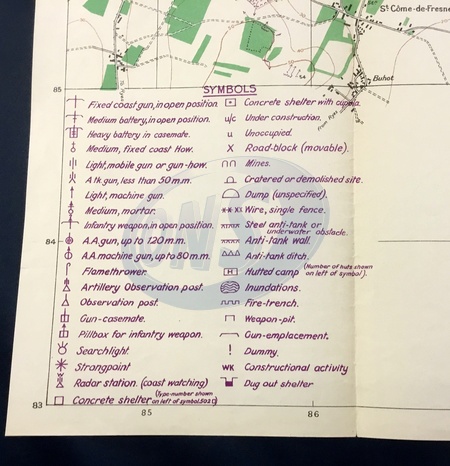 St Côme-de-Fresne
Buhot
from Rye
85
SYMBOLS
Fixed coast gun, in open position.
Medium battery, in open position.
Heavy battery in casemate.
Medium, fixed coast How.
Light, mobile gun or gun-how.
A tk gun, less than 50 m.m.
Light, machine gun.
Medium, mortar.
Infantry weapon, in open position.
A.A. gun, up to 120 m.m.
A.A. machine gun, up to 80 m.m.
Flamethrower.
Artillery Observation post.
Observation post.
Gun-casemate.
Pillbox for infantry weapon.
Searchlight.
Strongpoint
Radar station. (coast watching)
Concrete shelter (Type-number shown on left of symbol. 502)
Concrete shelter with cupola.
u/c Under construction.
u Unoccupied.
X Road-block (movable).
Mines.
Cratered or demolished site.
Dump (unspecified).
Wire, single fence.
Steel anti-tank or
underwater obstacle.
Anti-tank wall.
Anti-tank ditch.
H Hutted camp (Number of huts shown on left of symbol).
Inundations.
Fire-trench.
Weapon-pit.
Gun-emplacement.
! Dummy.
WK Constructional activity
Dug out shelter
84
83
85
86